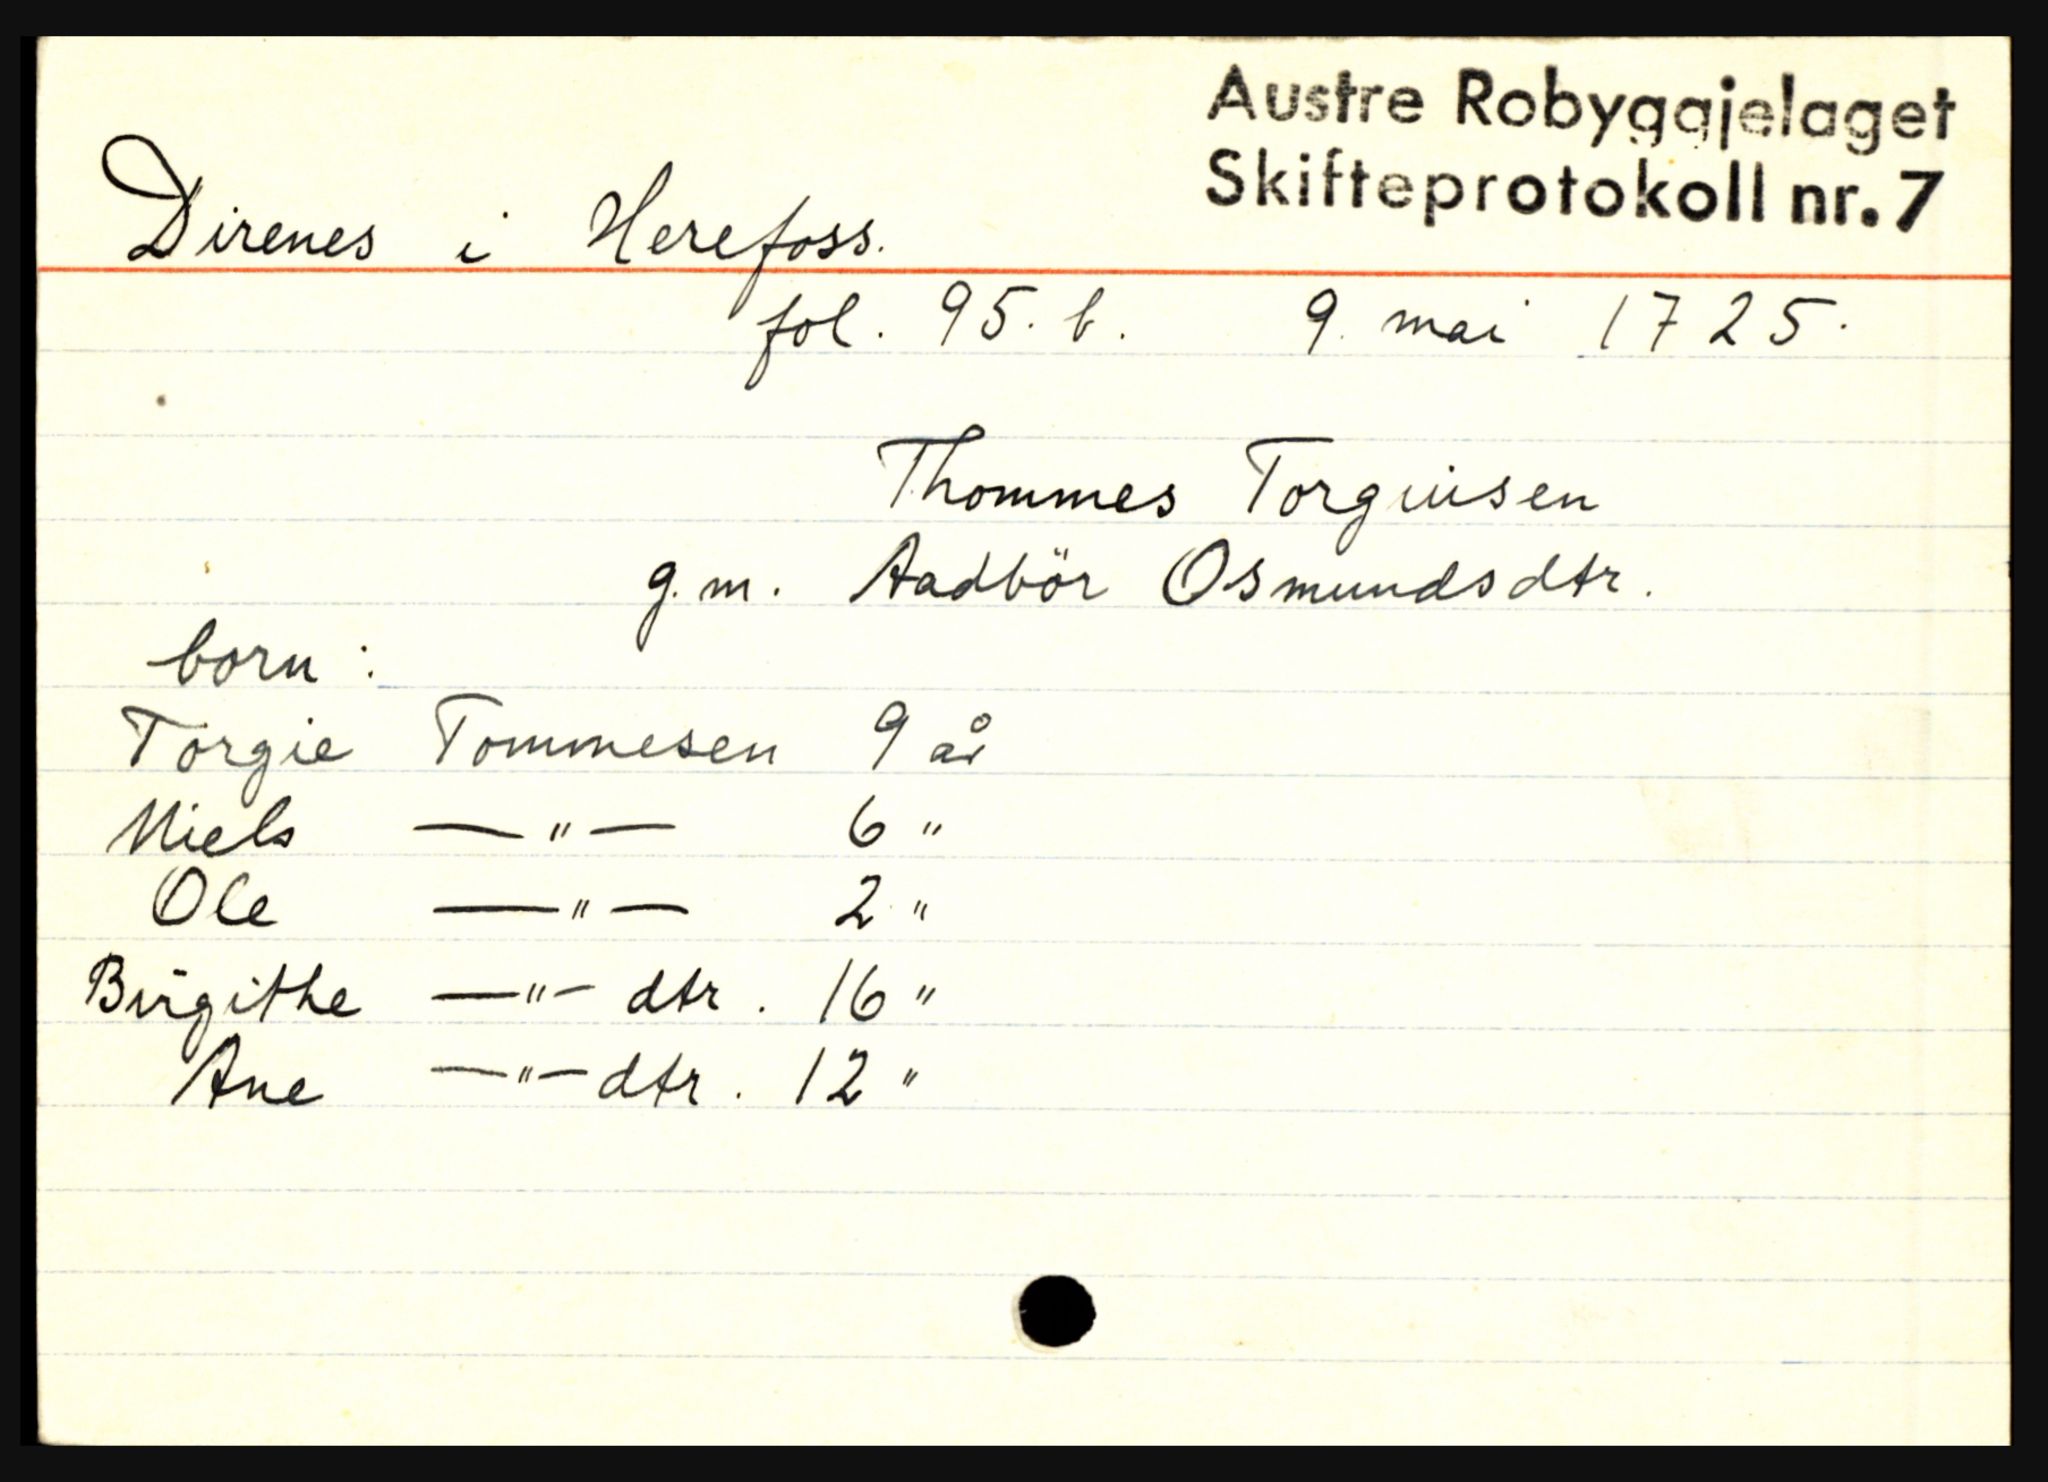 Austre Robyggjelaget
Skifteprotokoll nr. 7
Direnes i Herefoss.
fol. 95. b. 9. mai 1725.
Thommes Torgiusen
g.m. Aadbör Osmundsdtr.
born:
Torgie Tommesen 9 år
Niels —"— 6 "
Ole —"— 2 "
Birgithe —"— dtr. 16 "
Ane —"— dtr. 12 "